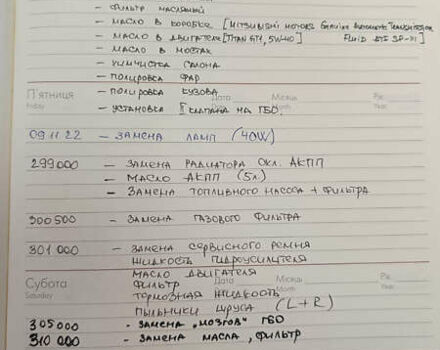 - ФИЛЬТР МАСЛЯНЫЙ
- МАСЛО В КОРОБКЕ [MITSUBISHI MOTORS GENUINE AUTOMATIC TRANSMISSION
- МАСЛО В ДВИГАТЕЛЕ [TITAN GT1, 5W40] FLUID ATF SP-III]
- МАСЛО В МОСТАХ
- ХИМЧИСТКА САЛОНА
- ПОЛИРОВКА ФАР
П'ятниця - ПОЛИРОВКА КУЗОВА Дата Місяць Рік
Friday - УСТАНОВКА КЛАПАНА НА ГБО. Date Month Year
09.11.22 - ЗАМЕНА ЛАМП (40W)
299000 - ЗАМЕНА РАДИАТОРА ОХЛ. АКПП
- МАСЛО АКПП (5л)
- ЗАМЕНА ТОПЛИВНОГО НАСОСА + ФИЛЬТРА
300500 - ЗАМЕНА ГАЗОВОГО ФИЛЬТРА
301 000 - ЗАМЕНА СЕРВИСНОГО РЕМНЯ
ЖИДКОСТЬ ГИДРОУСИЛИТЕЛЯ
Субота МАСЛО ДВИГАТЕЛЯ Місяць Рік
Saturday ФИЛЬТР Дата Date Month Year
ТОРМОЗНАЯ ЖИДКОСТЬ
ПЫЛЬНИКИ ШРУСА (L+R)
305000 - ЗАМЕНА „МОЗГОВ" ГБО
310 000 - ЗАМЕНА МАСЛА, ФИЛЬТР